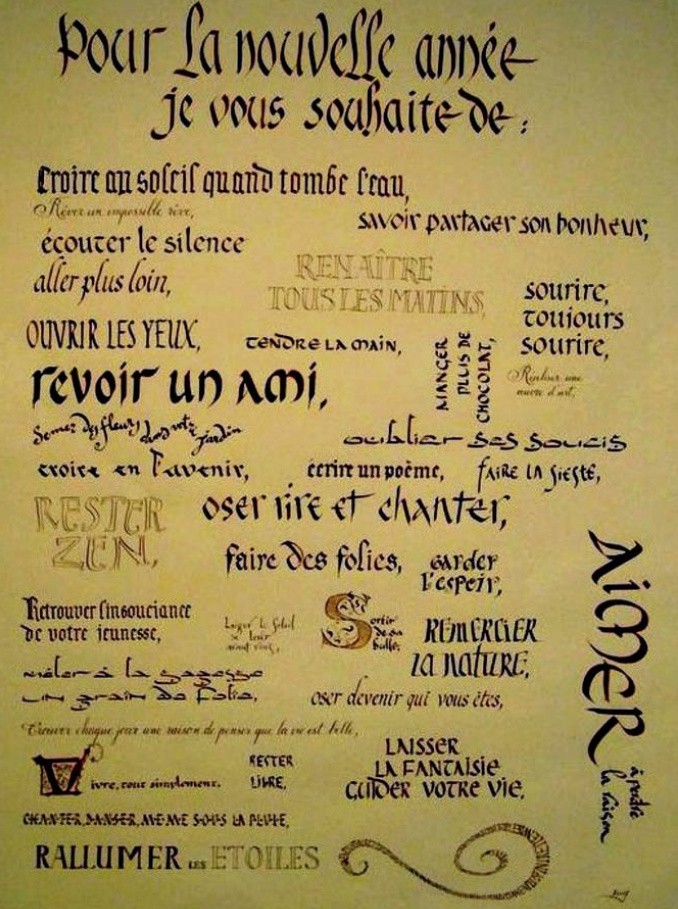 Pour la nouvelle année
je vous souhaite de :
Croire au soleil quand tombe l'eau,
Rêver un impossible rêve,
savoir partager son bonheur,
écouter le silence
aller plus loin,
RENAÎTRE
TOUS LES MATINS,
sourire,
toujours
sourire,
OUVRIR LES YEUX,
TENDRE LA MAIN,
MANGER
PLUS DE
CHOCOLAT,
Réaliser une
œuvre d'art,
revoir un ami,
Semez des fleurs dans votre
jardin
oublier ses soucis
croire en l'avenir,
écrire un poème,
FAIRE LA SIESTE,
RESTER
ZEN,
oser rire et chanter,
faire des folies,
garder
l'espoir,
AIMER
à perdre
la raison
Retrouver l'insouciance
de votre jeunesse,
le Soleil
se lever
Sortir
de sa
bulle,
REMERCIER
la nature,
mêler à la sagesse
un grain de folie,
oser devenir qui vous êtes,
Trouver chaque jour une raison de penser que la vie est belle,
Vivre, tout simplement,
RESTER
LIBRE,
LAISSER
LA FANTAISIE
GUIDER VOTRE VIE,
CHANTER, DANSER, MEME SOUS LA PLUIE,
RALLUMER LES ETOILES